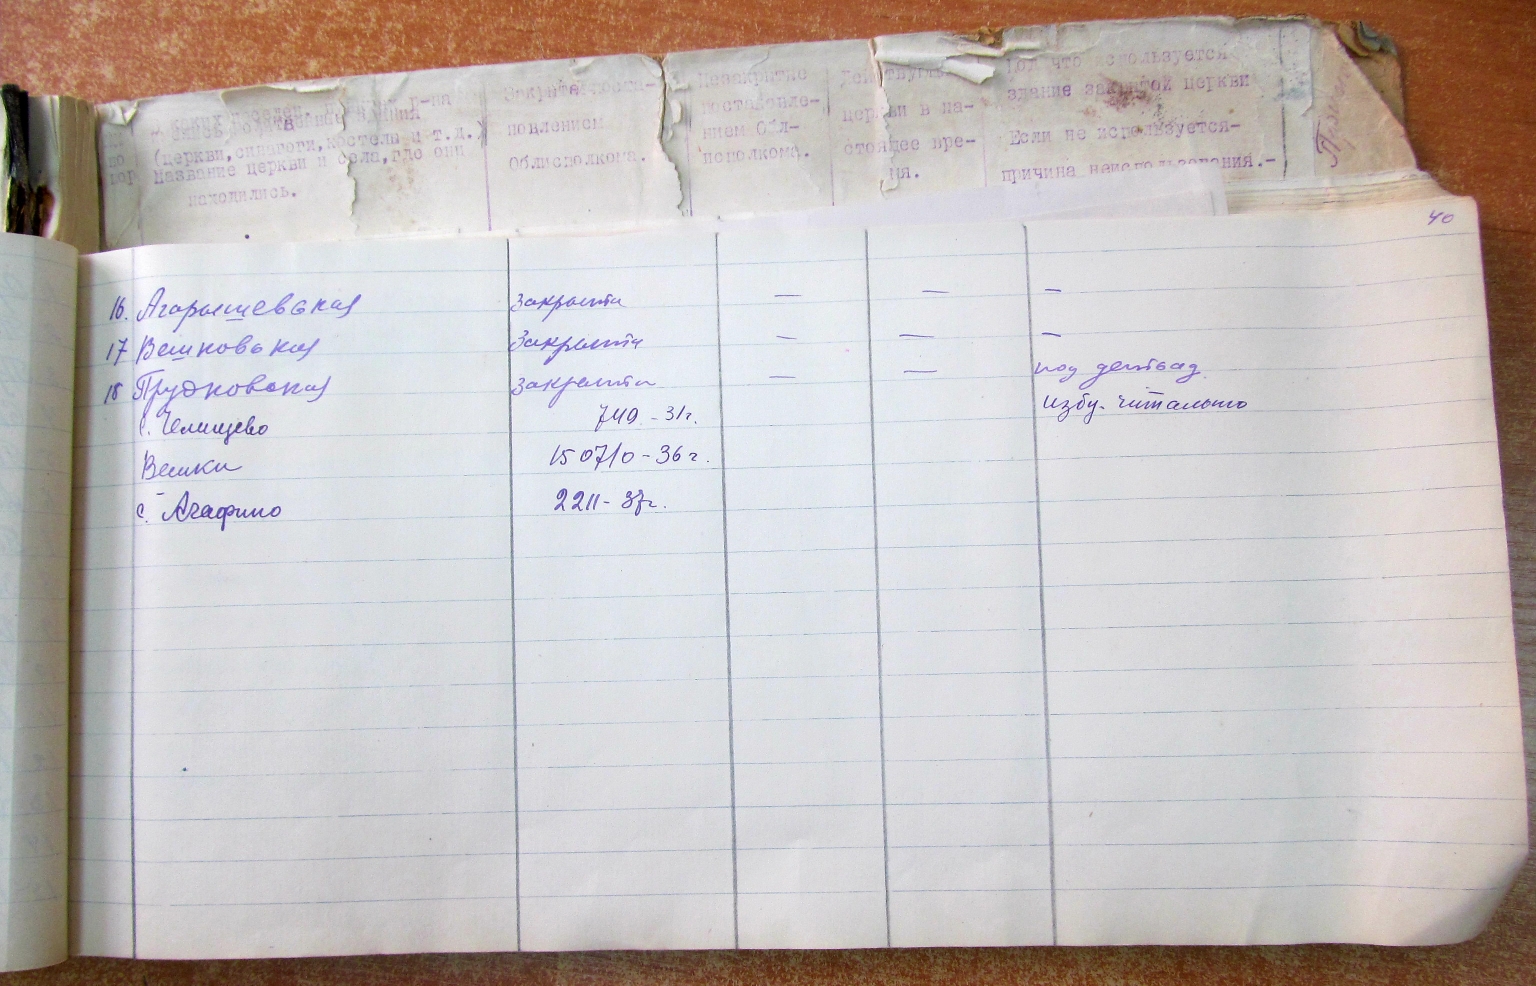 р-на
(церкви, синагоги, костелы и т.д.)
Название церкви и села, где они
находились.
Закрыта
новлением
Облисполкома.
Незакрытые
постановле-
нием Обл-
исполкома.
церкви в на-
стоящее вре-
мя.
Под что используется
здание закрытой церкви
Если не используется-
причина неиспользования.-
40
16. Агарышевская закрыта — — —
17 Вешковская Закрыта — — —
18 Прудковская закрыта — — под детсад.
с. Челищево 749 - 31г. избу-читальню
Вешки 1507/0 - 36 г.
с. Агафино 2211 - 37г.